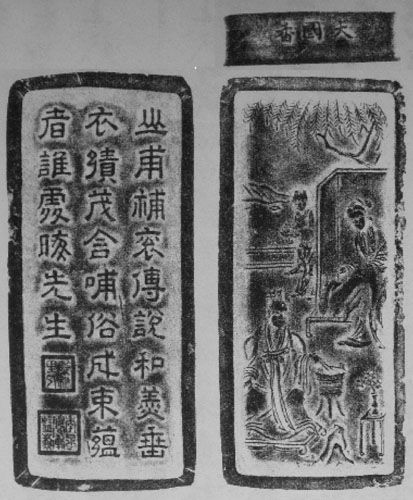 大國香
山甫補袞傅說和羹垂
衣績茂含哺俗成束蘊
者誰處晦先生